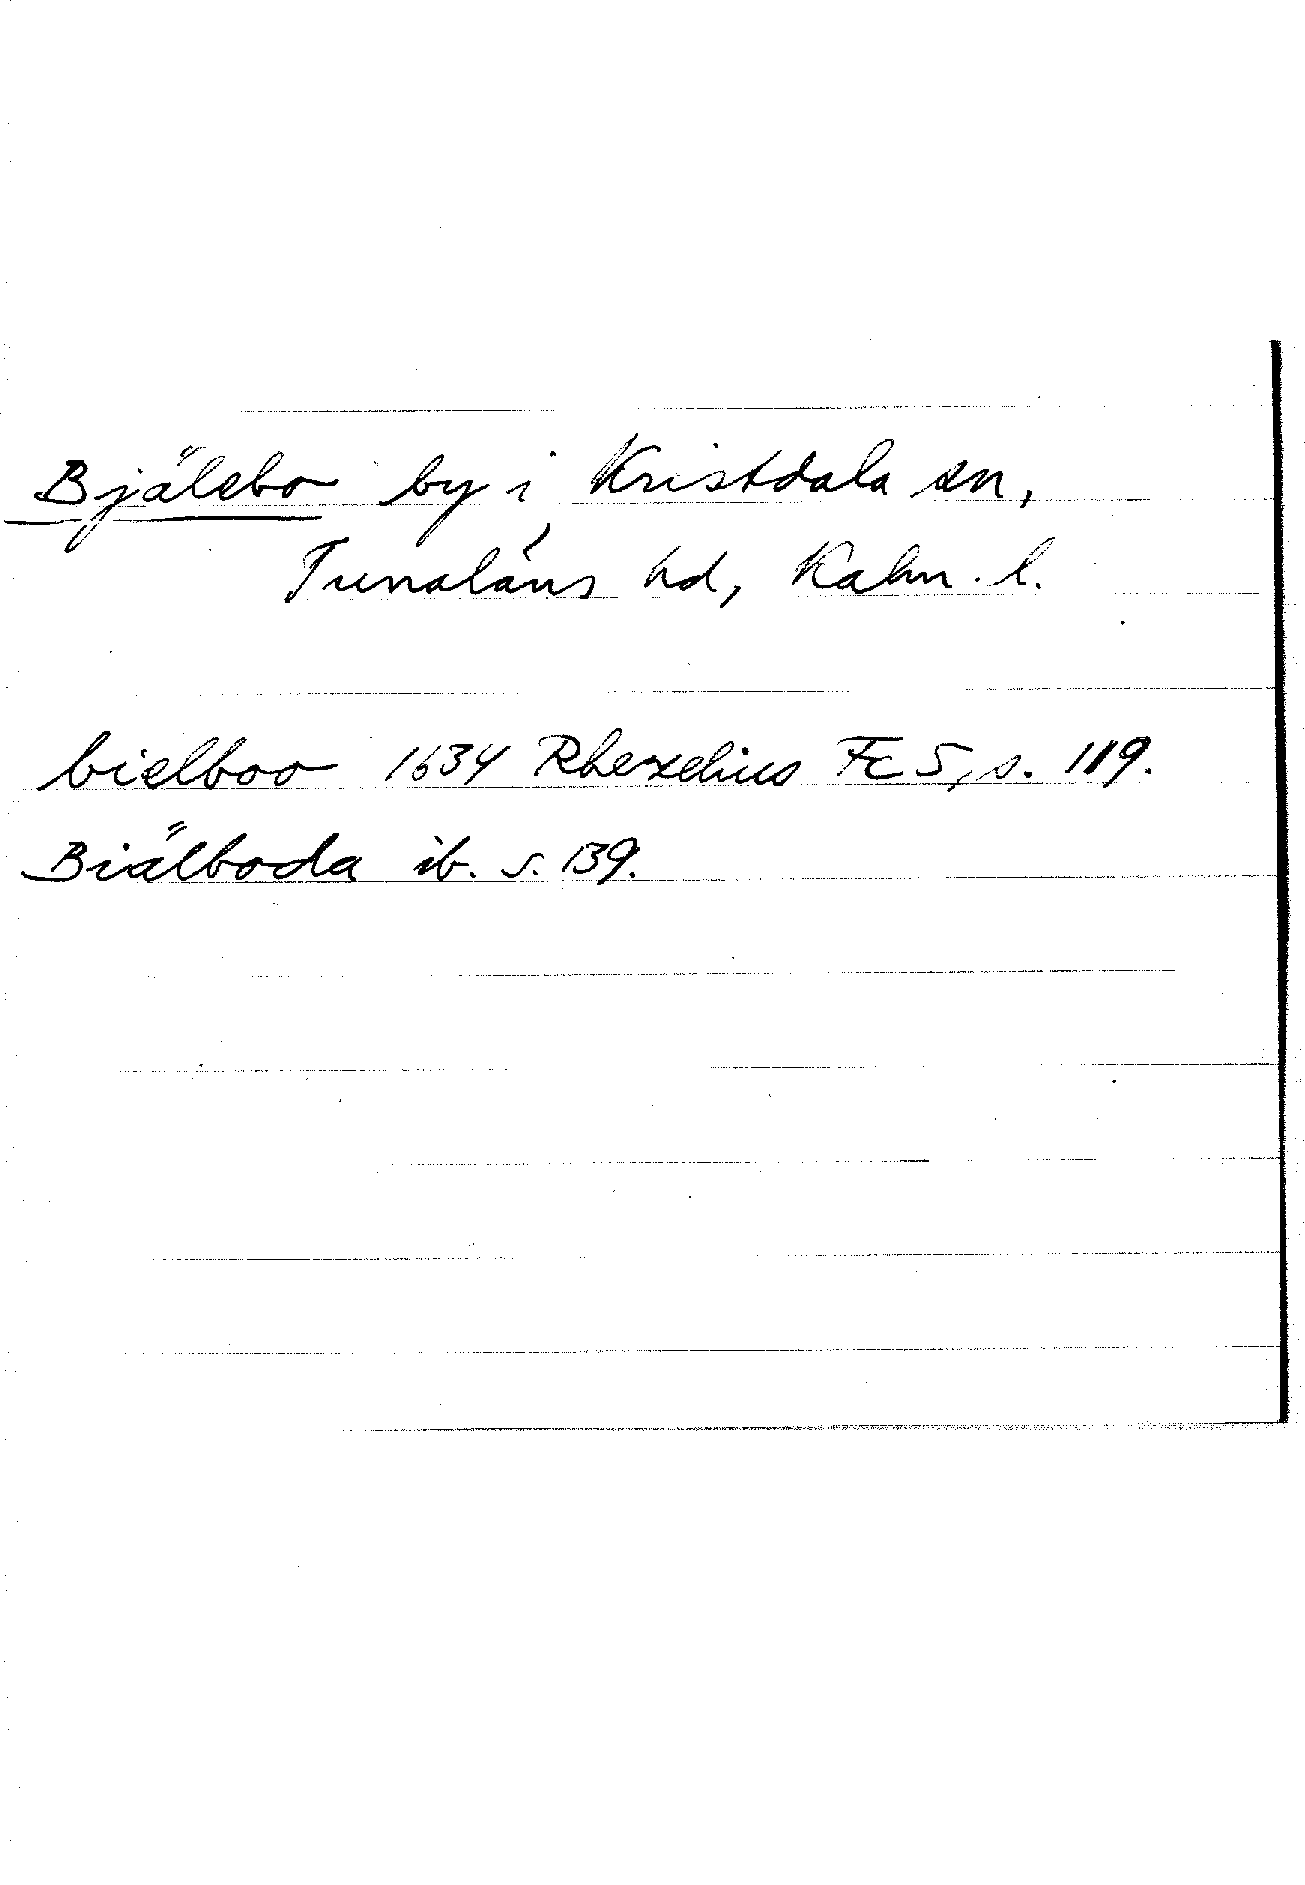 Bjälebo by i Kristdala sn,
Tunaläns hd, Kalm. l.
bielboo 1634 Rhezelius Fc 5, s. 119.
Biälboda ib. s. 139.